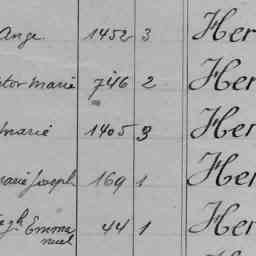 Ange. 1452 3 Her
ctor Marie 746 2 Her
Marie 1405 3 Her
Marie Joseph 169 1 Her
Emma 44 1 Her